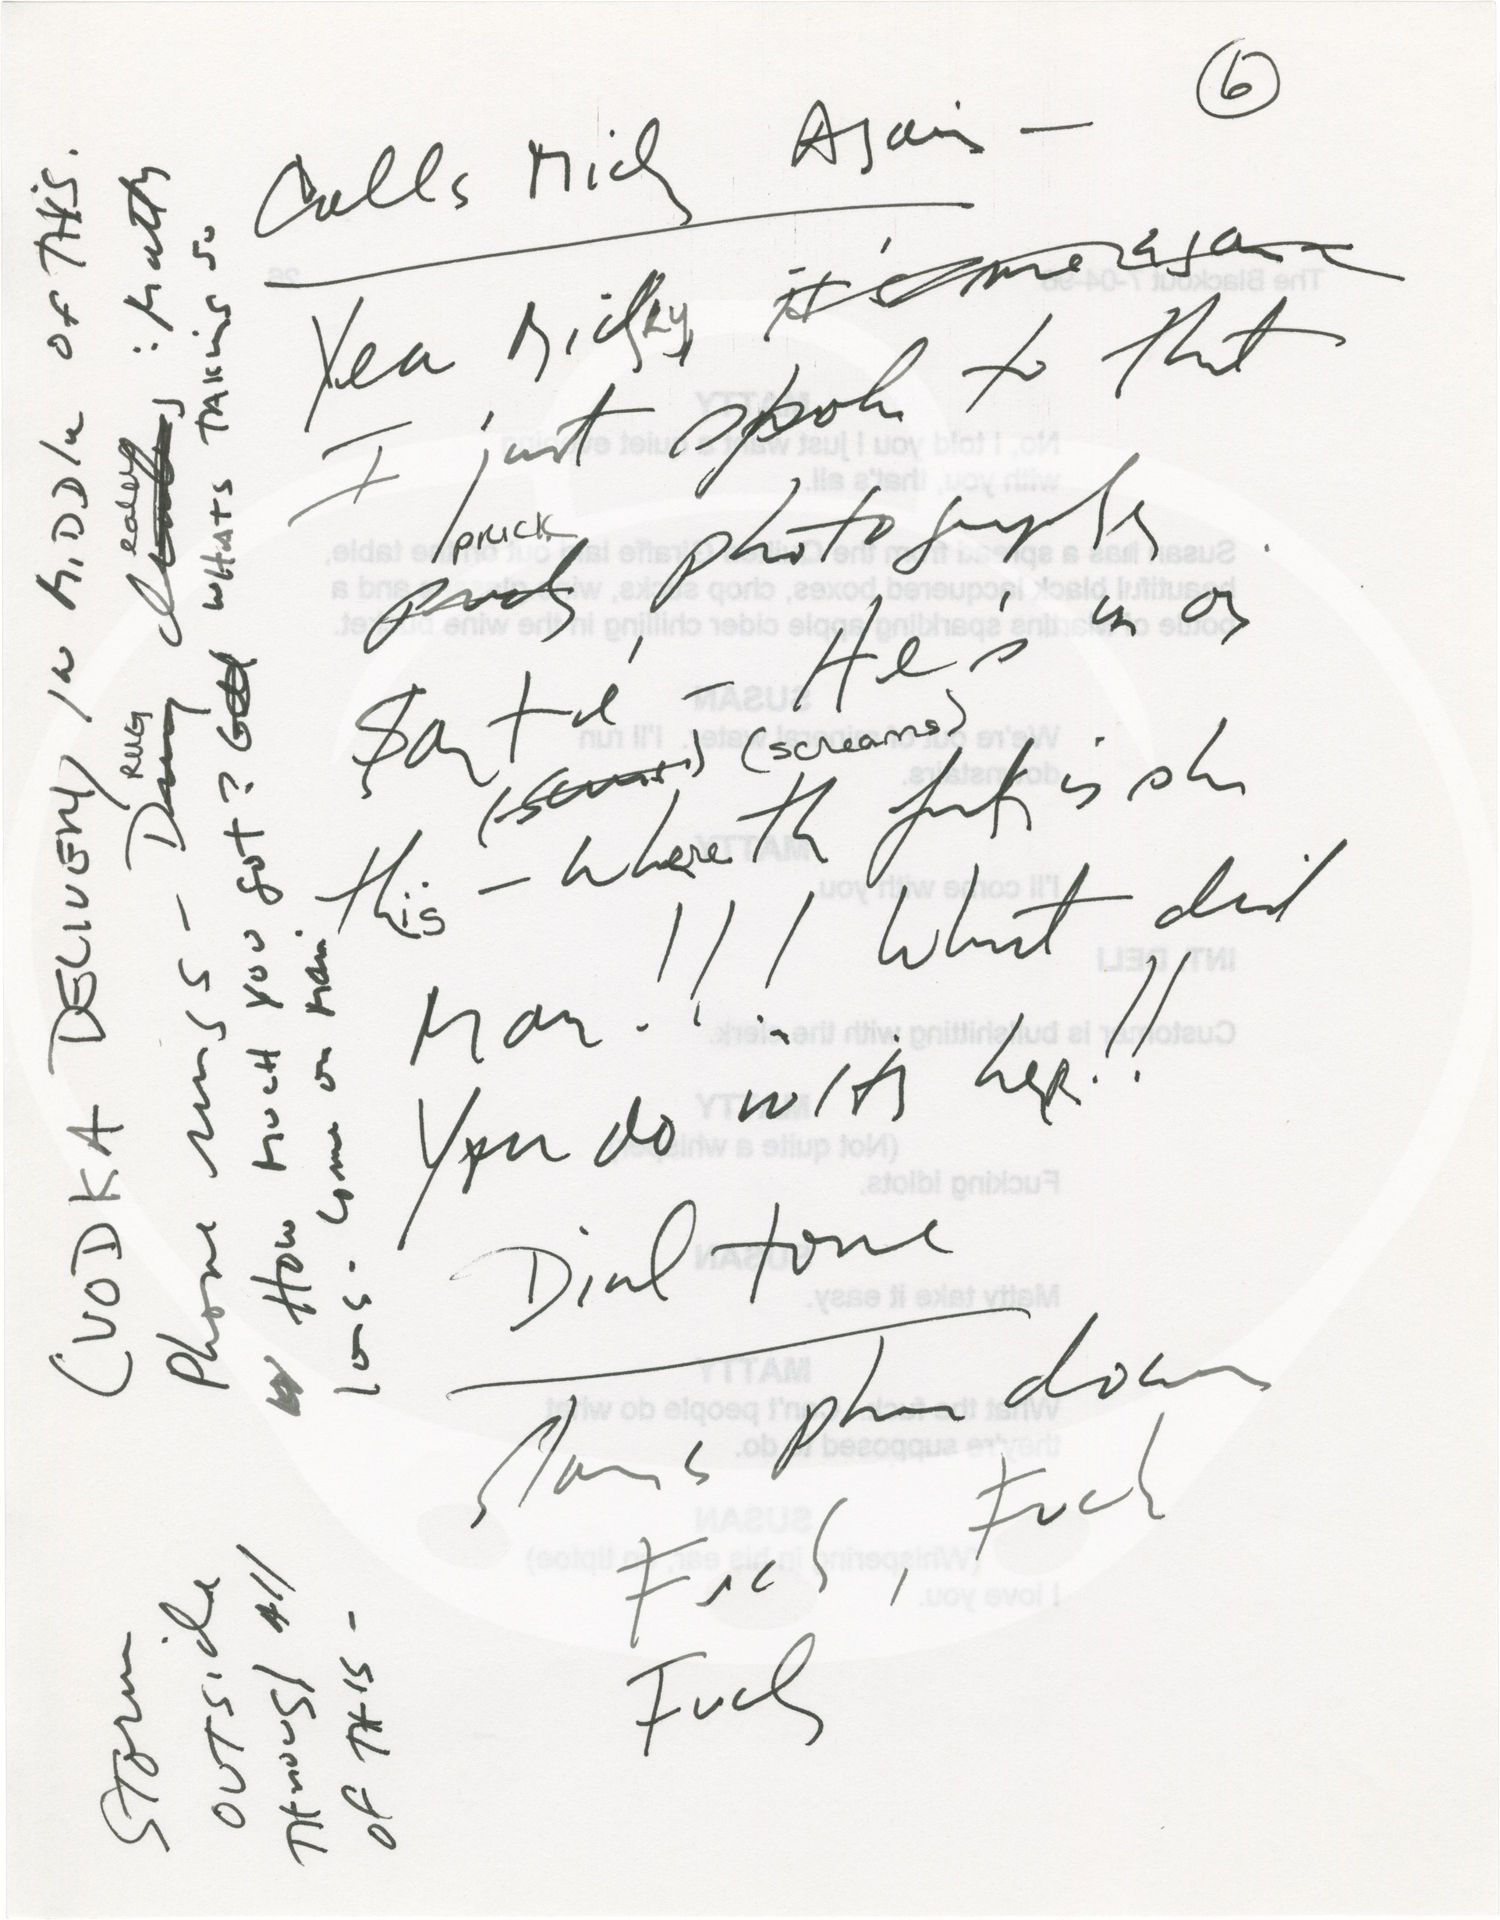 6
Calls Mick Again —
Yea Micky, it's me again
I just spoke to that
prick
photographer.
Santé, — He's in on
(screams) (screams)
this — where the fuck is she
Man.!!! What did
You do with her!!
Dial tone
slams phone down
Fuck, Fuck
Fuck
(VODKA DELIVERY IN MIDDLE OF THIS.
Phone rings — : Matty
How much you got? God whats taking so
long. come on man
Storm
outside
through all
of this —
The Blackout 7-04-96 26
MATTY
No, I told you I just want a quiet evening
with you, that's all.
Susan has a spread from the Quilted Giraffe laid out on the table,
beautiful black lacquered boxes, chop sticks, wine glasses and a
bottle of Martins sparkling apple cider chilling in the wine bucket.
SUSAN
We're out of mineral water. I'll run
downstairs.
MATTY
I'll come with you.
INT. DELI
Customer is bullshitting with the clerk.
MATTY
(Not quite a whisper)
Fucking idiots.
SUSAN
Matty take it easy.
MATTY
What the fuck. Can't people do what
they're supposed to do.
SUSAN
(Whispering in his ear, on tiptoe)
I love you.